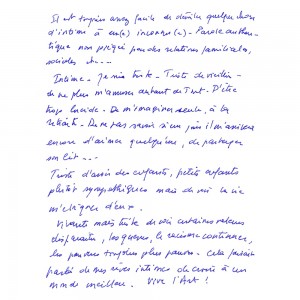 Il est toujours assez facile de dévoiler quelque chose
d'intime à un(e) inconnu(e) - Parole authen-
tique non piégée par des relations familiales,
sociales etc...
Intime - Je suis triste - Triste de vieillir -
de ne plus m'amuser autant de tout - D'être
trop lucide - De m'imaginer seule, à la
retraite - De ne pas savoir si un jour il m'arrivera
encore d'aimer quelqu'un, de partager
son lit ---
Triste d'avoir des enfants, petits enfants
plutôt sympathiques mais de voir la vie
m'éloigner d'eux -
Vivante mais triste de voir certaines valeurs
disparaître, les guerres, le racisme continuer,
les pauvres toujours plus pauvres - Cela faisait
partie de mes rêves intimes de croire à un
monde meilleur. Vive l'Art !